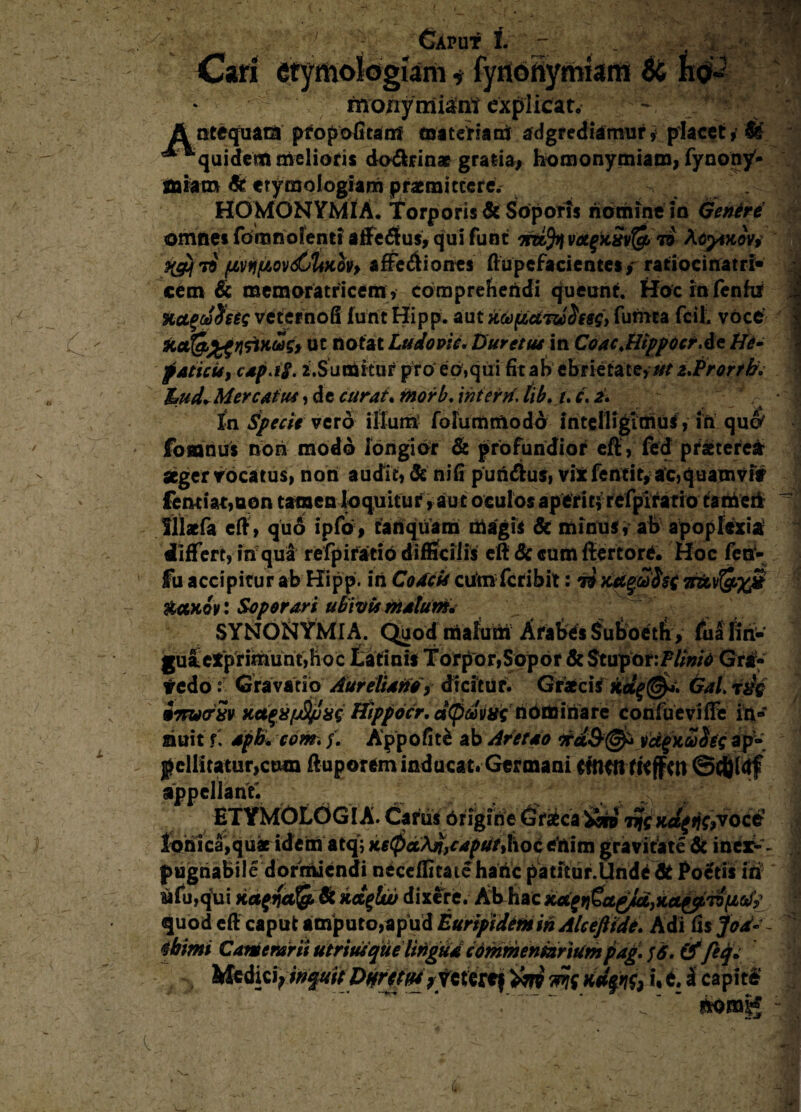 CAPUT I.
Cari etymologiam, synonymiam & ho-
monymiam explicat.
Antequam propositam materiam adgrediamur, placet, &
quidem melioris doctrinæ gratia, homonymiam, synony-
miam & etymologiam præmittere.
HOMONYMIA. Torporis & Soporis nomine in Genere
omnes somnolenti affectus, qui sunt πάθη ναρκᾶν τὸ λογικὸν,
καὶ τὸ μνημονευτικὸν, affectiones stupefacientes, ratiocinatri-
cem & memoratricem, comprehendi queunt. Hoc in sensu
καρώδεες veternosi sunt Hipp. aut κωματώδεες, sumta scil. voce
καταχρηστικῶς, ut notat Ludovic. Duretus in Coac. Hippocr. de He-
paticis, cap. 18. 2. Sumitur pro eo, qui fit ab ebrietate, ut 2. Prorrh.
Lud. Mercatus, de curat. morb. intern. lib. 1. c. 2.
In Specie verò illum solummodò intelligimus, in quo
somnus non modò longior & profundior est, sed præterea
æger vocatus, non audit, & nisi punctus, vix sentit, ac, quamvis
sentiat, non tamen loquitur, aut oculos aperit; respiratio tamen
illæsa est, quo ipso, tanquam magis & minus, ab apoplexia
differt, in quâ respiratio difficilis est & cum stertore. Hoc sen-
su accipitur ab Hipp. in Coacis cum scribit: τὸ καρῶδες πανταχοῦ
κακόν: Soporari ubivis malum.
SYNONYMIA. Quod malum Arabes Suboeth, suâ lin-
guâ exprimunt, hoc Latinis Torpor, Sopor & Stupor: Plinio Gra-
vedo: Gravatio Aureliano, dicitur. Græcis κάρος. Gal. τὰς
καρους Hippocr. ἀφώνους nominare consuevisse in-
nuit 5. aph. com. 5. Appositè ab Aretæo πάθος ναρκῶδες ap-
pellitatur, cum stuporem inducat. Germani einen tieffen Schlaf
appellant.
ETYMOLOGIA. Carus origine Græca ἀπὸ τῆς κάρης, voce
Ionicâ, quæ idem atq; κεφαλὴ, caput, hoc enim gravitate & inex-
pugnabile dormiendi necessitate hanc patitur. Unde & Poetis in
usu, qui κάρηνα & κάρην dixere. Ab hac καρηβαρία, καρατομῶ,
quod est caput amputo, apud Euripidem in Alcestide. Adi sis Joa-
chimi Camerarii utriusque linguæ commentarium pag. 56. & seq.
Medici, inquit Duretus, veteres ἀπὸ τῆς κάρης, i. e. à capite
nomi-